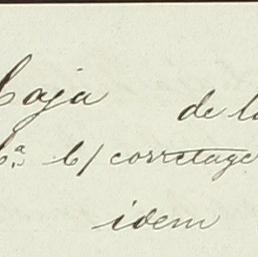 Caja de la
Cª b/ corretage
idem